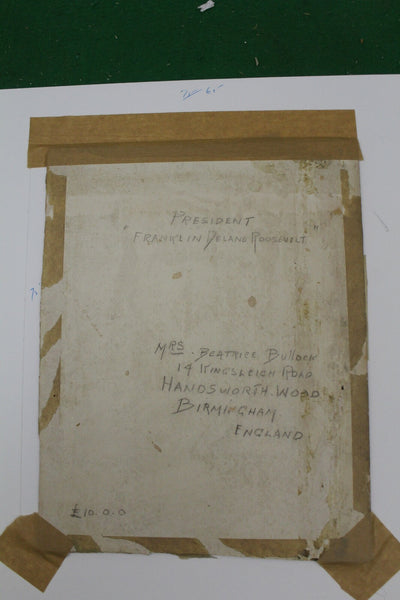 65
PRESIDENT
"FRANKLIN DELANO ROOSEVELT"
MRS. BEATRICE BULLOCK
14 KINGSLEIGH ROAD
HANDSWORTH. WOOD
BIRMINGHAM
ENGLAND
£10.0.0